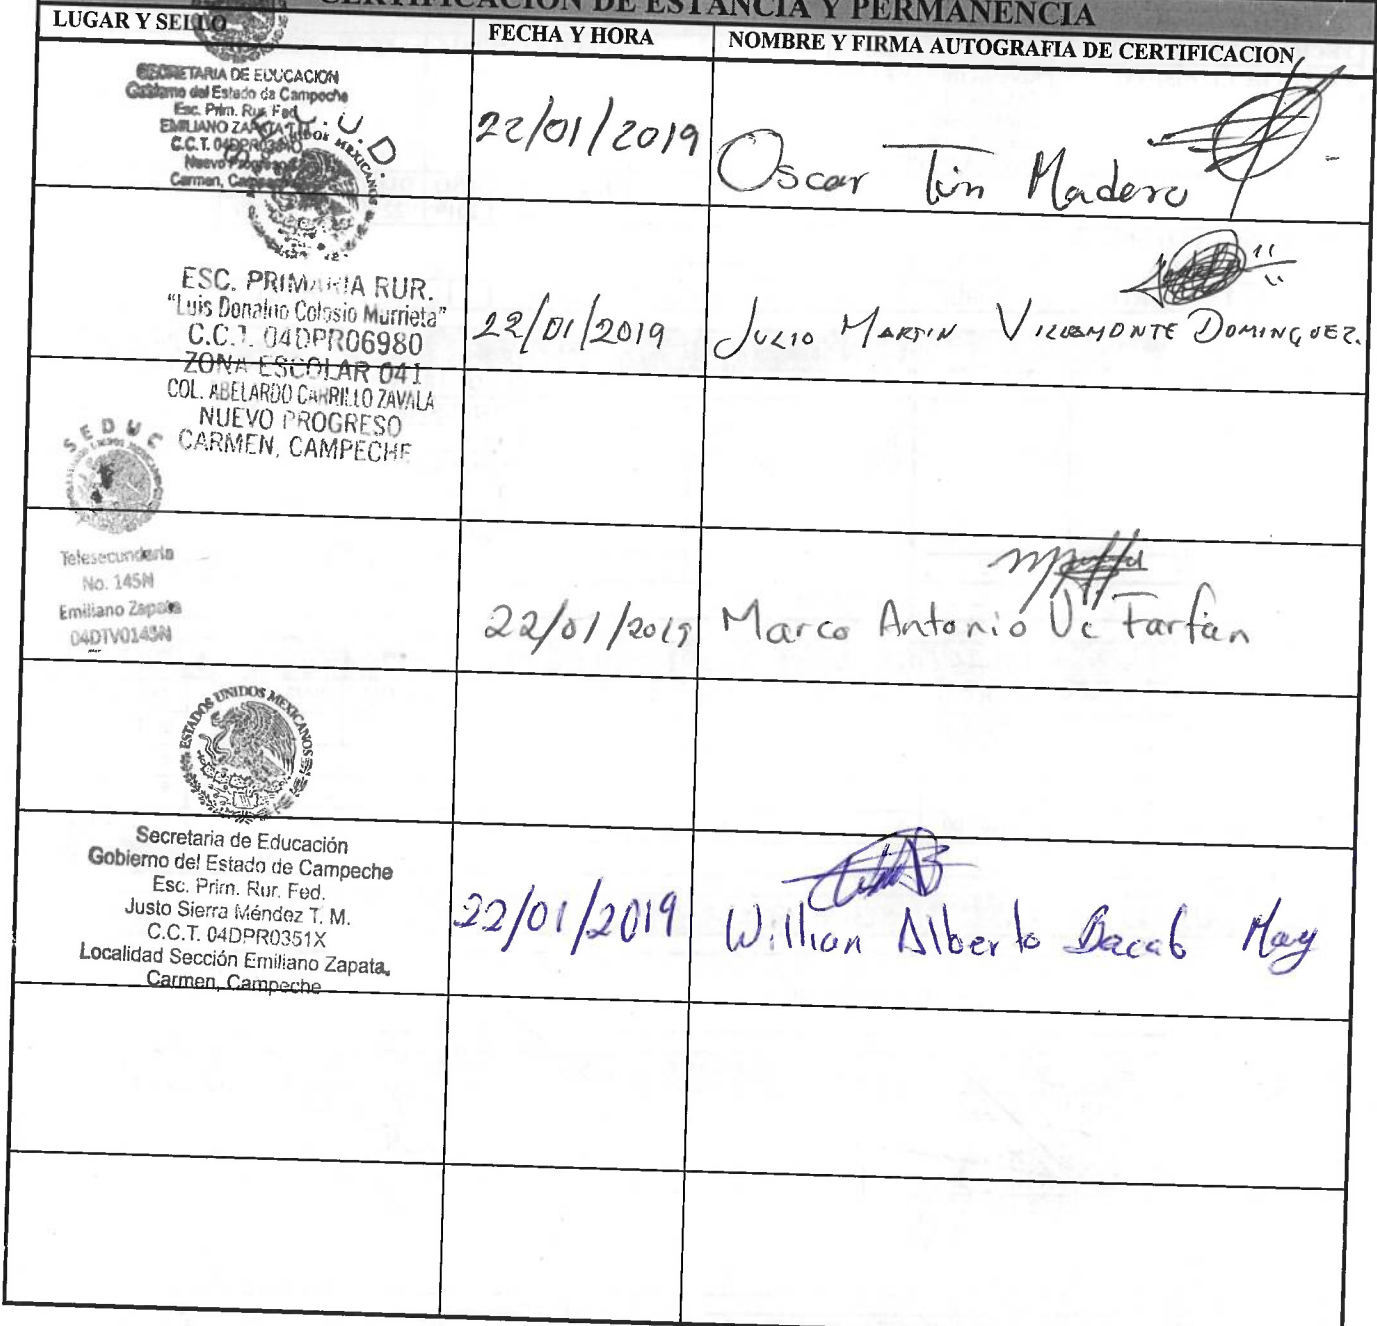 CERTIFICACION DE ESTANCIA Y PERMANENCIA
LUGAR Y SELLO
FECHA Y HORA
NOMBRE Y FIRMA AUTOGRAFIA DE CERTIFICACION
SECRETARIA DE EDUCACION
Gobierno del Estado de Campeche
Esc. Prim. Rur. Fed.
EMILIANO ZAPATA T.M.
C.C.T.
Nuevo Progreso
Carmen, Campeche
22/01/2019
Oscar Tun Madero
ESC. PRIMARIA RUR.
"Luis Donaldo Colosio Murrieta"
C.C.T. 04DPR06980
ZONA ESCOLAR 041
COL. ABELARDO CARRILLO ZAVALA
NUEVO PROGRESO
CARMEN, CAMPECHE
22/01/2019
JULIO MARTIN VILLAMONTE DOMINGUEZ.
SEDUC
Telesecundaria
No. 145N
Emiliano Zapata
04DTV0145N
22/01/2019
Marco Antonio Uc Farfán
ESTADOS UNIDOS MEXICANOS
Secretaria de Educación
Gobierno del Estado de Campeche
Esc. Prim. Rur. Fed.
Justo Sierra Méndez T. M.
C.C.T. 04DPR0351X
Localidad Sección Emiliano Zapata,
Carmen, Campeche
22/01/2019
Willian Alberto Bacab May